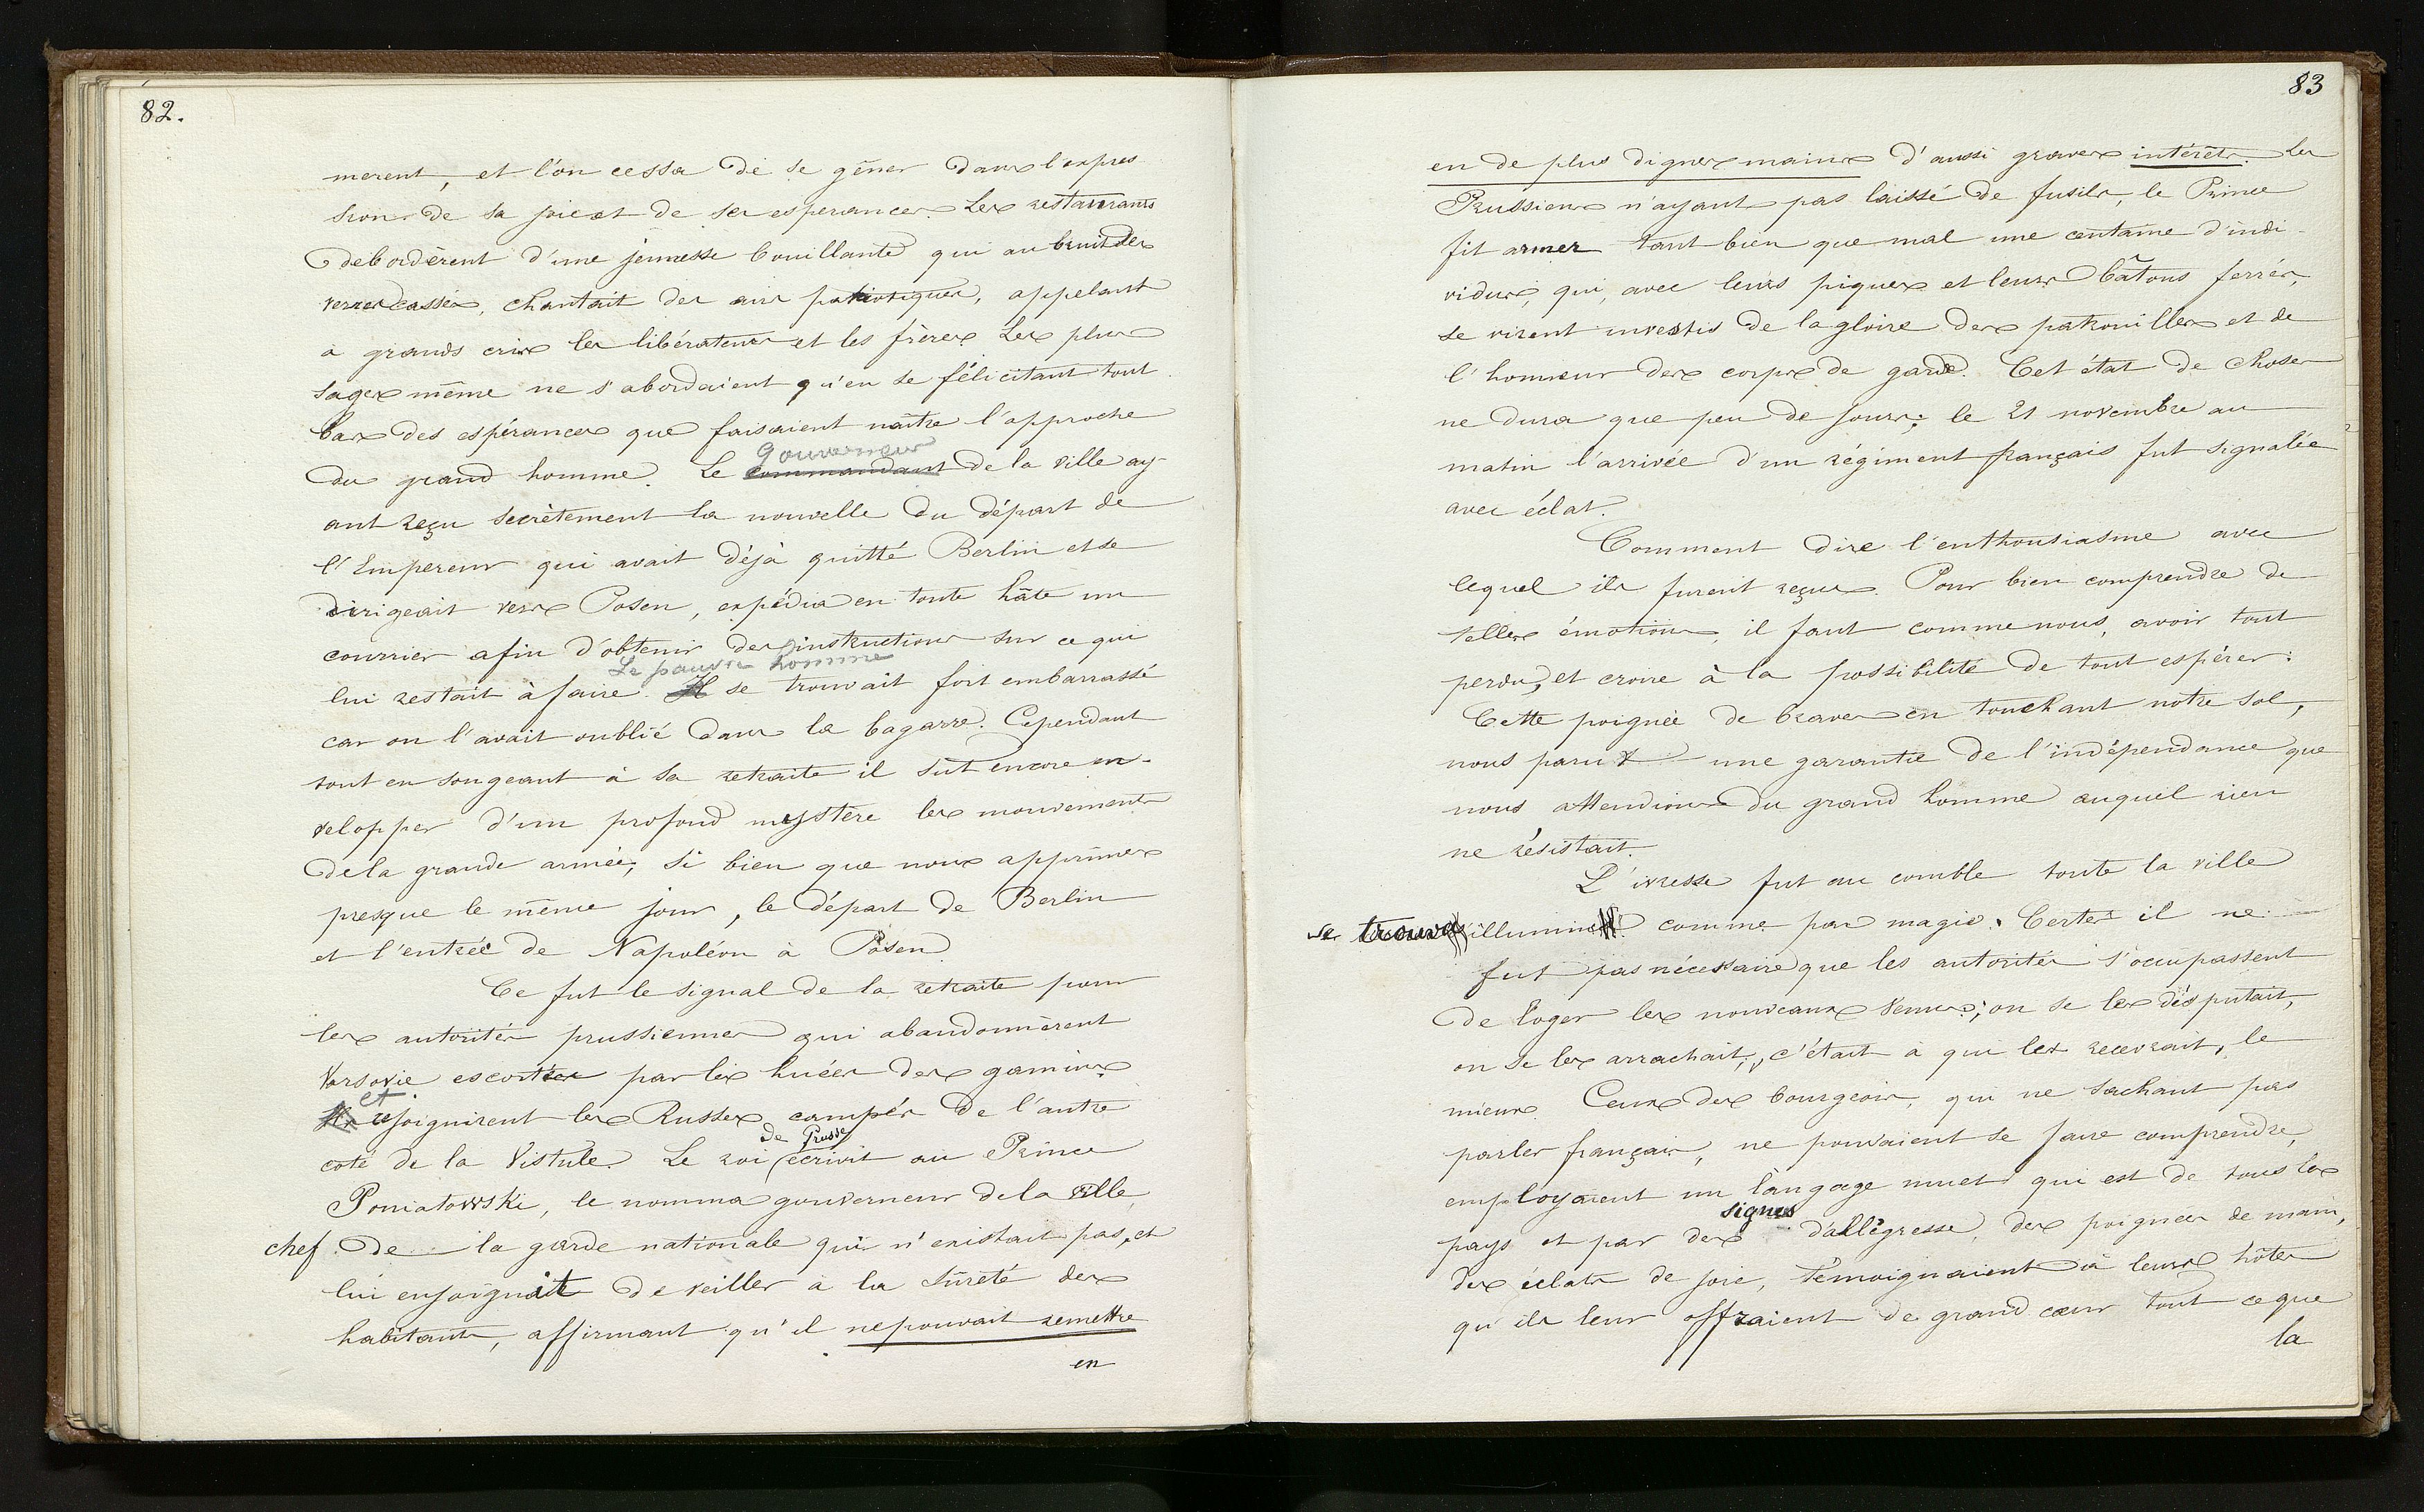 82.
merent, et l'on cessa de se gêner dans l'expres
sion de sa joie et de ses esperances. Les restaurants
debordèrent d'une jeunesse bouillante qui au bruit des
verres cassés, chantait des airs patriotiques, appelant
a grands cris les libérateurs et les frères. Les plus
sages même ne s'abordaient qu'en se félicitant tout
bas des espérances que faisaient naître l'approche
gouverneur
du grand homme. Le commandant de la ville ay-
ant reçu secrètement la nouvelle du départ de
l'Empereur qui avait déjà quitté Berlin et se
dirigeait vers Posen, expédia en toute hâte un
courrier afin d'obtenir des instructions sur ce qui
Le pauvre homme
lui restait à faire. Il se trouvait fort embarrassé
car on l'avait oublié dans la bagarre. Cependant
tout en songeant à sa retraite il sut encore en-
velopper d'un profond mystère les mouvements
de la grande armée, si bien que nous apprimes
presque le même jour, le départ de Berlin
et l'entrée de Napoléon à Posen.
Ce fut le signal de la retraite pour
les autorités prussiennes qui abandonnèrent
Varsovie escortées par les huées des gamins
et
Ils rejoignirent les Russes campés de l'autre
de Prusse
coté de la Vistule. Le roi écrivit au Prince
Poniatowski, le nomma gouverneur de la ville,
chef de la garde nationale qui n'existait pas, et
lui enjoignait de veiller à la sûreté des
habitants, affirmant qu'il ne pouvait remettre
en
83
en de plus dignes mains d'aussi graves intérêts. Les
Prussiens n'ayant pas laissé de fusils, le Prince
fit armer tant bien que mal une centaine d'indi-
vidus, qui, avec leurs piques et leurs bâtons ferrés,
se virent investis de la gloire des patrouilles et de
l'honneur des corps de garde. Cet état de choses
ne dura que peu de jours; le 21 novembre au
matin l'arrivée d'un régiment français fut signalée
avec éclat.
Comment dire l'enthousiasme avec
lequel ils furent reçus. Pour bien comprendre de
telles émotions, il faut comme nous, avoir tout
perdu, et croire à la possibilité de tout espérer:
Cette poignée de braves en touchant notre sol,
nous parut une garantie de l'indépendance que
nous attendions du grand homme auquel rien
ne résistait.
L'ivresse fut au comble toute la ville
se trouva illuminée comme par magie. Certes il ne
fut pas nécessaire que les autorités s'occupassent
de loger les nouveaux venus; on se les disputait,
on se les arrachait, c'était à qui les recevrait, le
mieux. Ceux des bourgeois, qui ne sachant pas
parler français, ne pouvaient se faire comprendre,
employaient un langage muet qui est de tous les
signes
pays et par des d'allègresse, des poignées de main,
des éclats de joie, témoignaient à leurs hôtes
qu'ils leur offraient de grand cœur tout ce que
la